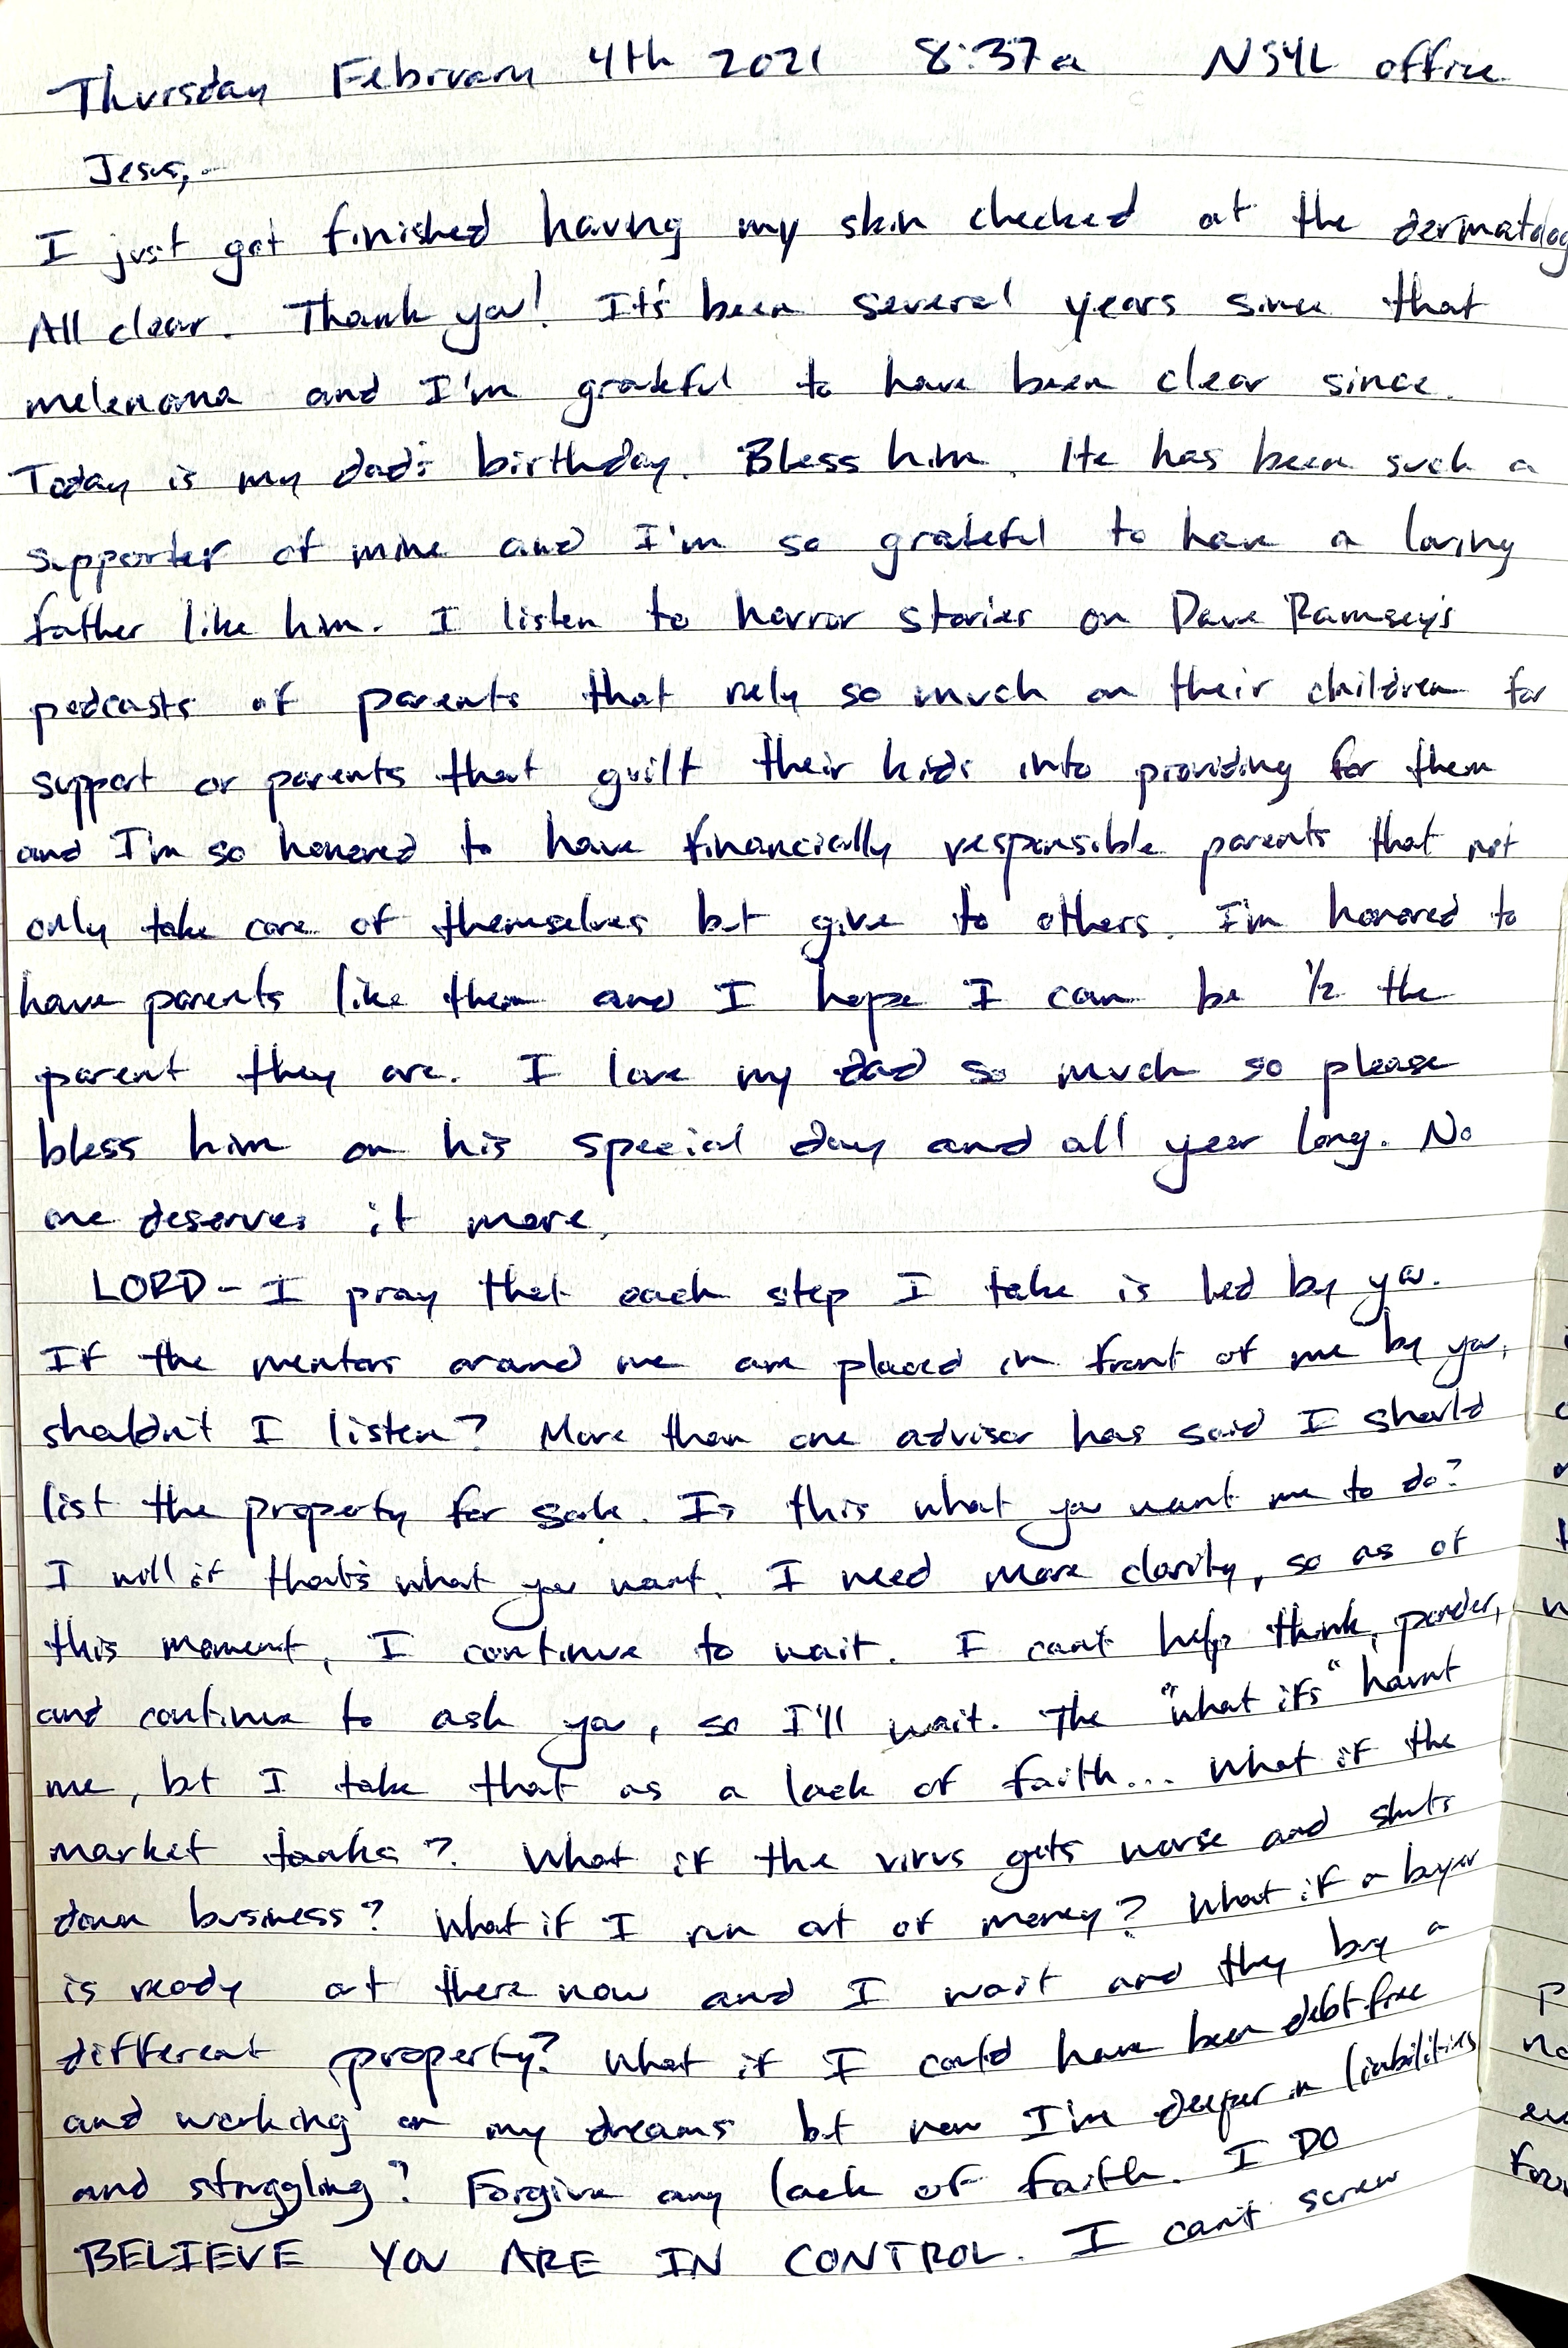 Thursday February 4th 2021 8:37a NSYL office
Jesus,
I just got finished having my skin checked at the dermatolog
All clear. Thank you! It's been several years since that
melenoma and I'm grateful to have been clear since.
Today is my dad's birthday. Bless him. He has been such a
supporter of mine and I'm so grateful to have a loving
father like him. I listen to horror stories on Dave Ramsey's
podcasts of parents that rely so much on their children for
support or parents that guilt their kids into providing for them
and I'm so honored to have financially responsible parents that not
only take care of themselves but give to others. I'm honored to
have parents like them and I hope I can be 1/2 the
parent they are. I love my dad so much so please
bless him on his special day and all year long. No
one deserves it more.
LORD - I pray that each step I take is led by you.
If the mentors around me are placed in front of me by you,
shouldn't I listen? More than one advisor has said I should
list the property for sale. Is this what you want me to do?
I will if that's what you want. I need more clarity, so as of
this moment, I continue to wait. I can't help think, ponder,
and continue to ask you, so I'll wait. The "what ifs" haunt
me, but I take that as a lack of faith... What if the
market tanks? What if the virus gets worse and shuts
down business? What if I run out of money? What if a buyer
is ready out there now and I wait and they buy a
different property? What if I could have been debt free
and working on my dreams but now I'm deeper in liabilities
and struggling? Forgive any lack of faith. I DO
BELIEVE YOU ARE IN CONTROL. I can't screw